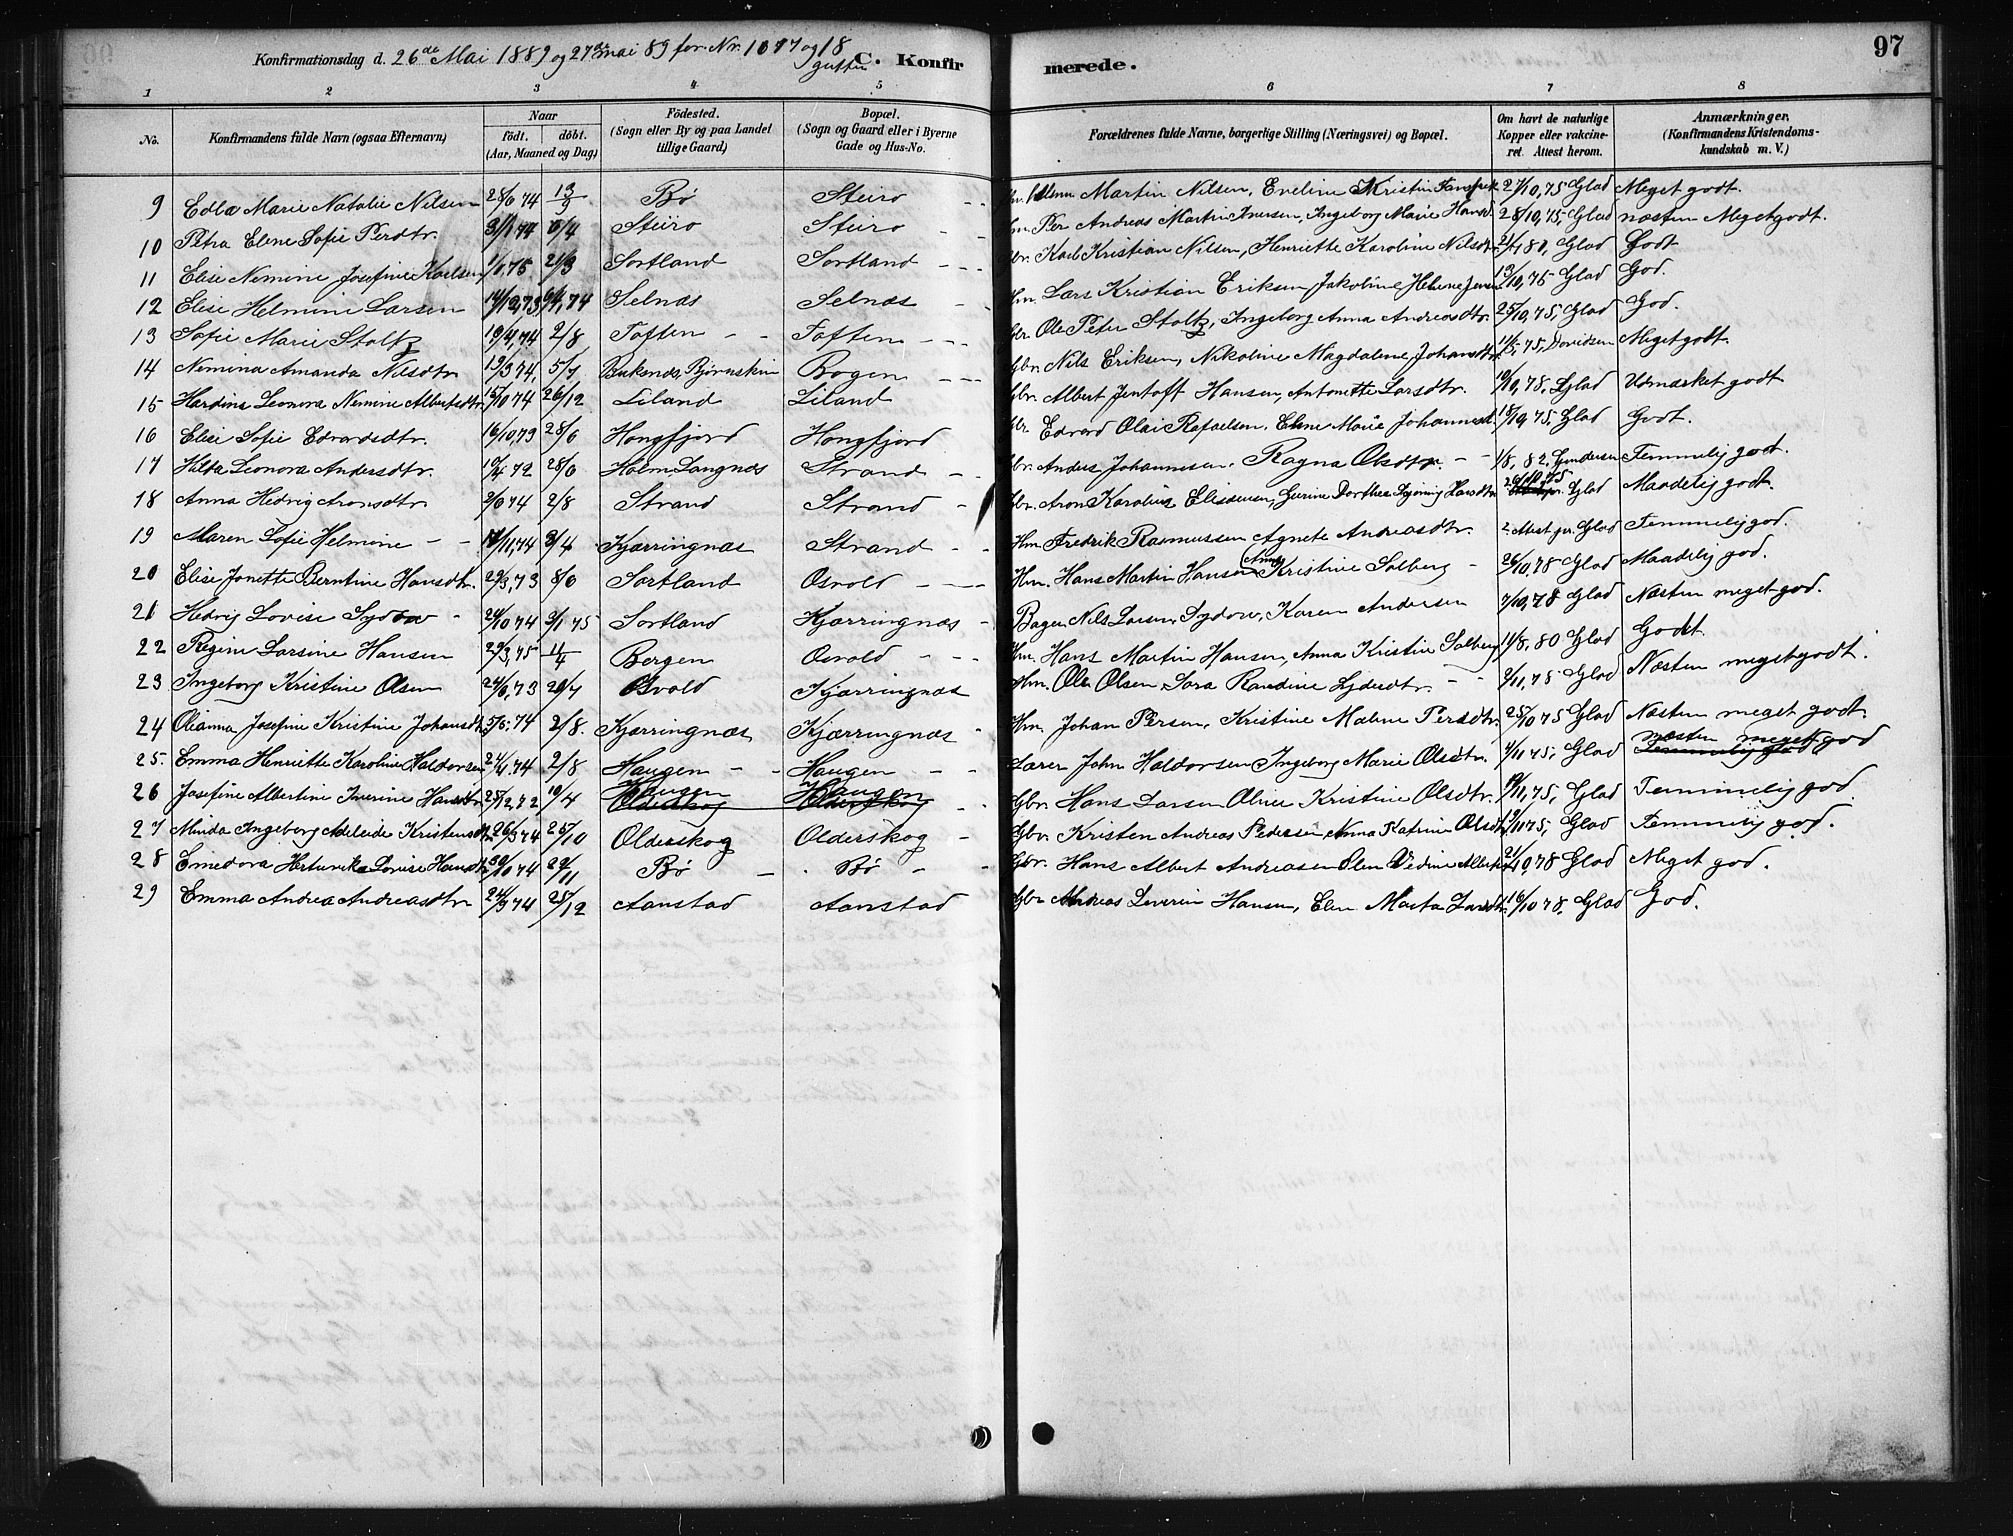 Konfirmationsdag d. 26de Mai 1889 og 27de mai 89 for Nr. 16 17 og 18 gutter
C. Konfirmerede.
97
1 2 3 4 5 6 7 8
No.
Konfirmandens fulde Navn (ogsaa Efternavn)
Naar
födt. döbt.
(Aar, Maaned og Dag)
Födested.
(Sogn eller By og paa Landet tillige Gaard)
Bopæl.
(Sogn og Gaard eller i Byerne Gade og Hus-No.
Forældrenes fulde Navne, borgerlige Stilling (Næringsvei) og Bopæl.
Om havt de naturlige Kopper eller vakcineret. Attest herom.
Anmærkninger.
(Konfirmandens Kristendomskundskab m. V.)
9 Edla Marie Natalie Nilsen 28/6 74 13/9 Bø Steiro Martin Nilsen, Eveline Kristin 27/10, 75 Glad Meget godt.
10 Petra Elene Sofie Persdtr. 31/1 74 6/4 Steiro Steiro Hm. Per Andreas Martin Iversen, Ingeborg Marie Hansd. 28/10, 75, Glad næsten Megetgodt.
11 Elise Nemine Josefine Karlsen 1/1, 75 21/3 Sortland Sortland Gbr. Karl Kristian Nilsen, Henriette Karoline Nilsdtr. 21/7, 81, Glad Godt
12 Elise Helmine Larsen 14/12, 73 6/4, 74 Selnæs Selnæs Hm. Lars Kristian Eriksen Jakobine Helene Jensen 13/10, 75 Glad God.
13 Sofie Marie Stoltz 19/4, 74 2/8 Toften Toften Gbr. Ole Peter Stoltz, Ingeborg Anna Andreasdtr. 25/10, 75, Glad God.
14 Nemina Amanda Nilsdtr 19/3 74, 5/7 Bukenæs, Bjørnskin Bogen Gbr. Nils Eriksen, Nikoline Magdalene Johansdtr 11/5, 75, Davidsen Meget godt.
15 Hardine Leonora Nemine Albertsdtr. 15/10 74 26/12 Liland Liland Gbr. Albert Jentoft Hansen, Antonette Larsdtr. 10/10, 78, Glad Udmærket godt
16 Elise Sofie Edvardsdtr. 16/10, 73 28/6 Hongfjord Hongfjord Gbr. Edvard Olai Rafaelsen, Elene Marie Johannesd. 18/10, 75, Glad Godt.
17 Hilda Leonora Andersdtr. 10/4 72 28/6 Holm Langnæs Strand Gbr. Anders Johannesen. Ragna Olsdtr. 1/8, 82, Gundersen Temmelig godt.
18 Anna Hedvig Aronsdtr 2/6 74 2/8 Strand Strand Gbr. Aron Karolius Elisæusen, Gurine Dorthea Hansdtr Glad Maadelig godt.
19 Maren Sofie Helmine 17/11, 74 3/4 Kjærringnæs Strand Hm Fredrik Rasmussen Agnete Andreasdtr. Attest pr. Glad Temmelig god.
20 Elise Jonette Berntine Hansdtr. 29/3, 73 8/6 Sortland Osvold Hm. Hans Martin Hansen Anna Kristine Solberg 26/10, 78 Glad Maadelig god.
21 Hedvig Lovise Sydow 24/10 74 3/1 75 Sortland Kjærringnæs Bager Nils Larsen Sydow, Karen Andersen 7/10, 78 Glad Næsten meget god.
22 Regine Larsine Hansen 29/3, 75 11/4 Bergen Osvold Hm. Hans Martin Hansen, Anna Kristine Solberg 11/8, 80 Glad Godt.
23 Ingeborg Kristine Olsen 24/6, 73 20/7 Osvold Kjærringnæs Hm. Ole Olsen Sara Randine Lydersdtr. 2/11, 75 Glad Næsten meget godt.
24 Olianna Josefine Kristine Johansdtr. 5/6, 74 2/8. Kjærringnæs Kjærringnæs Hm. Johan Persen, Kristine Maline Persdtr. 25/10 75 Glad Næsten meget godt.
25. Emma Henriette Karoline Haldorsen 24/4, 74 2/8 Haugen Haugen Lærer John Haldorsen Ingeborg Marie Olsdtr. 4/11 75, Glad næsten meget god
26 Josefine Albertine Iverine Hansdtr. 28/12, 72 10/4 Haugen Olderskog Haugen Olderskog Gbr. Hans Larsen Oline Kristine Olsdtr. 19/11, 75, Glad Temmelig god.
27 Minda Ingeborg Adeleide Kristensdtr. 26/3 74 25/10 Olderskog Olderskog Gbr. Kristen Andreas Pedersen, Anna Katrine Olsdtr 1/11 75, Glad Temmelig god.
28 Emedora Hertuvika Lovise Hansdtr 30/10 74 29/11 Bø Bø Gbr. Hans Albert Andreasen Elen Vedine Albertsd. 21/10, 78 Glad Meget god.
29 Emma Andrea Andreasdtr. 24/9 74 25/12 Aanstad Aanstad Gbr. Andreas Severin Hansen, Elen Marta Larsdtr. 16/10 78, Glad God.